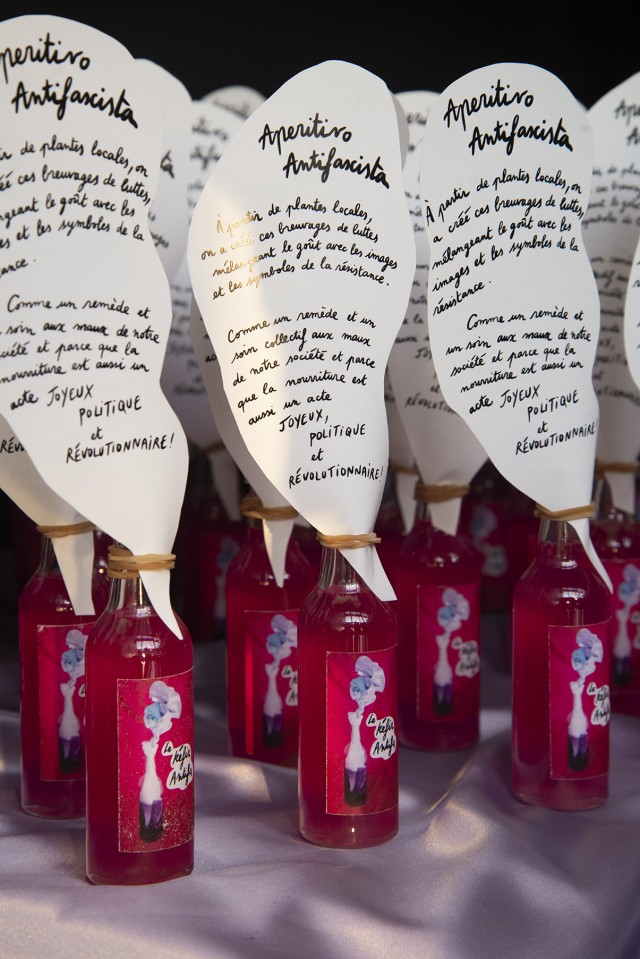 peritivo
Antifascista
ir de plantes locales, on
éé ces breuvages de luttes,
angeant le goût avec les
es et les symboles de la
ance.
Comme un remède et
soin aux maux de notre
ociété et parce que la
nourriture est aussi un
acte JOYEUX
POLITIQUE
et
RÉVOLUTIONNAIRE!
Aperitivo
Antifascista
À partir de plantes locales,
on a créé ces breuvages de luttes
mélangeant le goût avec les images
et les symboles de la résistance.
Comme un remède et un
soin collectif aux maux
de notre société et parce
que la nourriture est
aussi un acte
JOYEUX,
POLITIQUE
et
RÉVOLUTIONNAIRE!
Aperitivo
Antifascista
À partir de plantes locales, on
a créé ces breuvages de luttes,
mélangeant le goût avec les
images et les symboles de la
résistance.
Comme un remède et
un soin aux maux de notre
société et parce que la
nourriture est aussi un
acte JOYEUX
POLITIQUE
et
RÉVOLUTIONNAIRE!
Le
Kéfir
Antifa
Le
Kéfir
Antifa
Le
Kéfir
Antifa